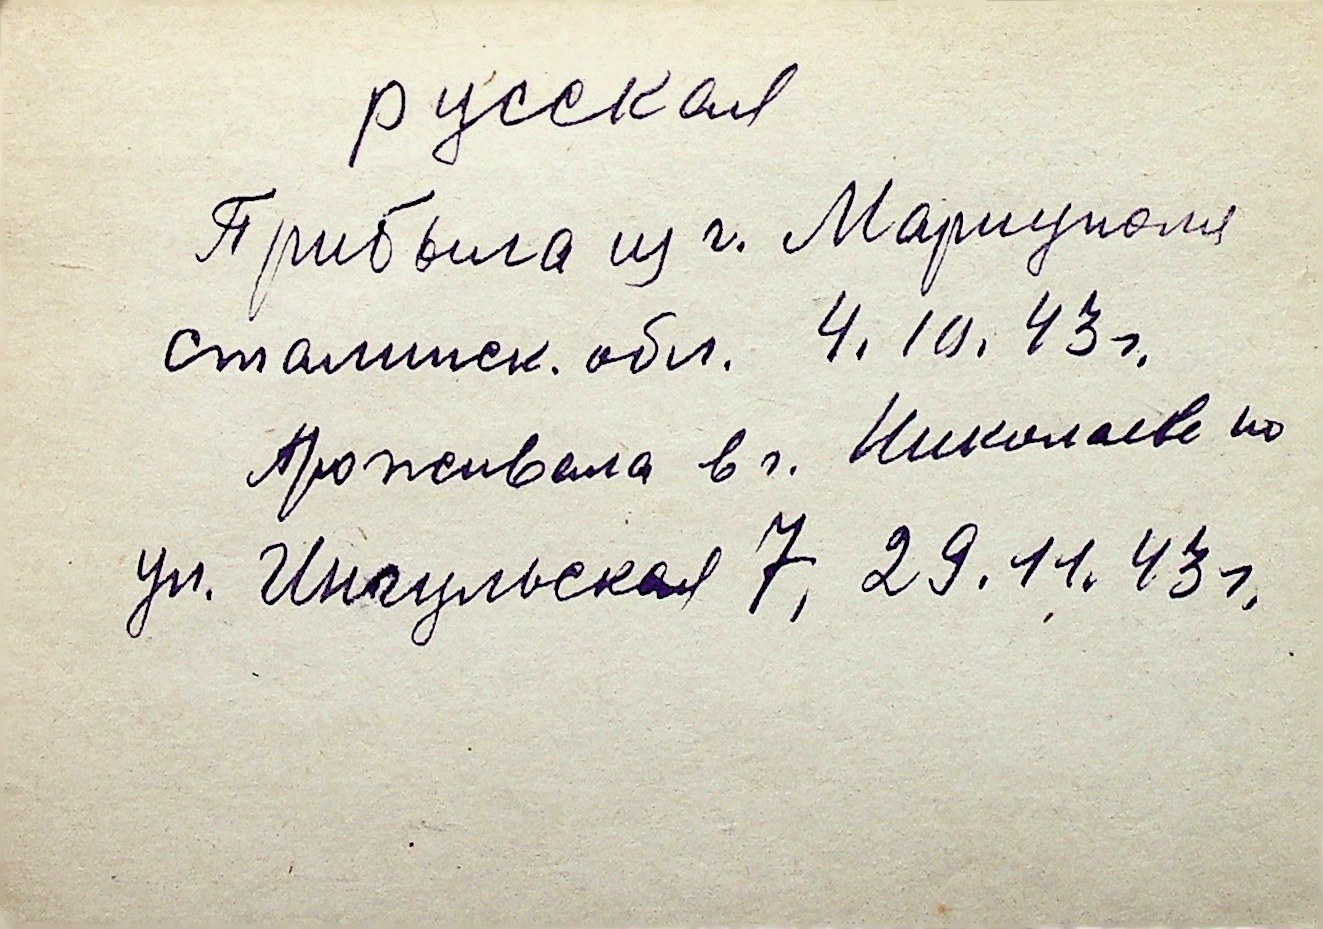 русская
Прибыла из г. Мариуполя
сталинск. обл. 4.10.43г.
Проживала в г. Николаеве по
ул. Ингульская 7, 29.11.43г.